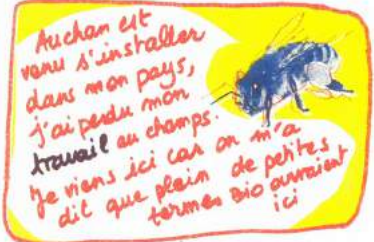 Auchan est
venu s'installer
dans mon pays,
j'ai perdu mon
travail au champs.
Je viens ici car on m'a
dit que plein de petites
fermes BIO ouvraient
ici